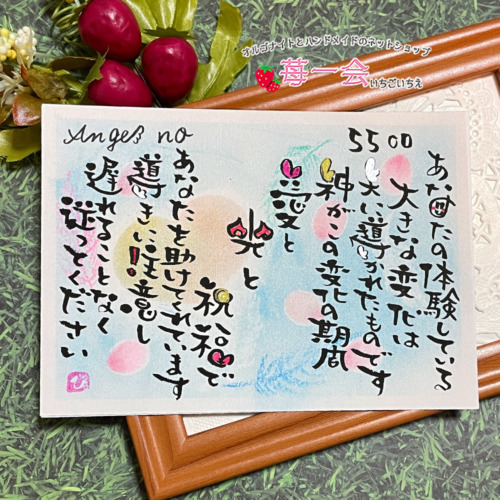 オルゴナイトとハンドメイドのネットショップ
苺一会
いちごいちえ
Angel no
5500
あなたの体験している
大きな変化は
大いに導かれたものです
神がこの変化の期間
愛と
光と
祝福で
あなたを助けてくれています
導きに注意し
遅れることなく
従ってください